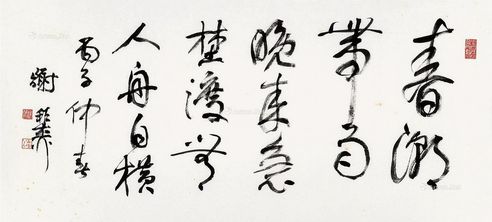 春潮
带雨
晚来急
野渡無
人舟自横
丙子仲春
谢